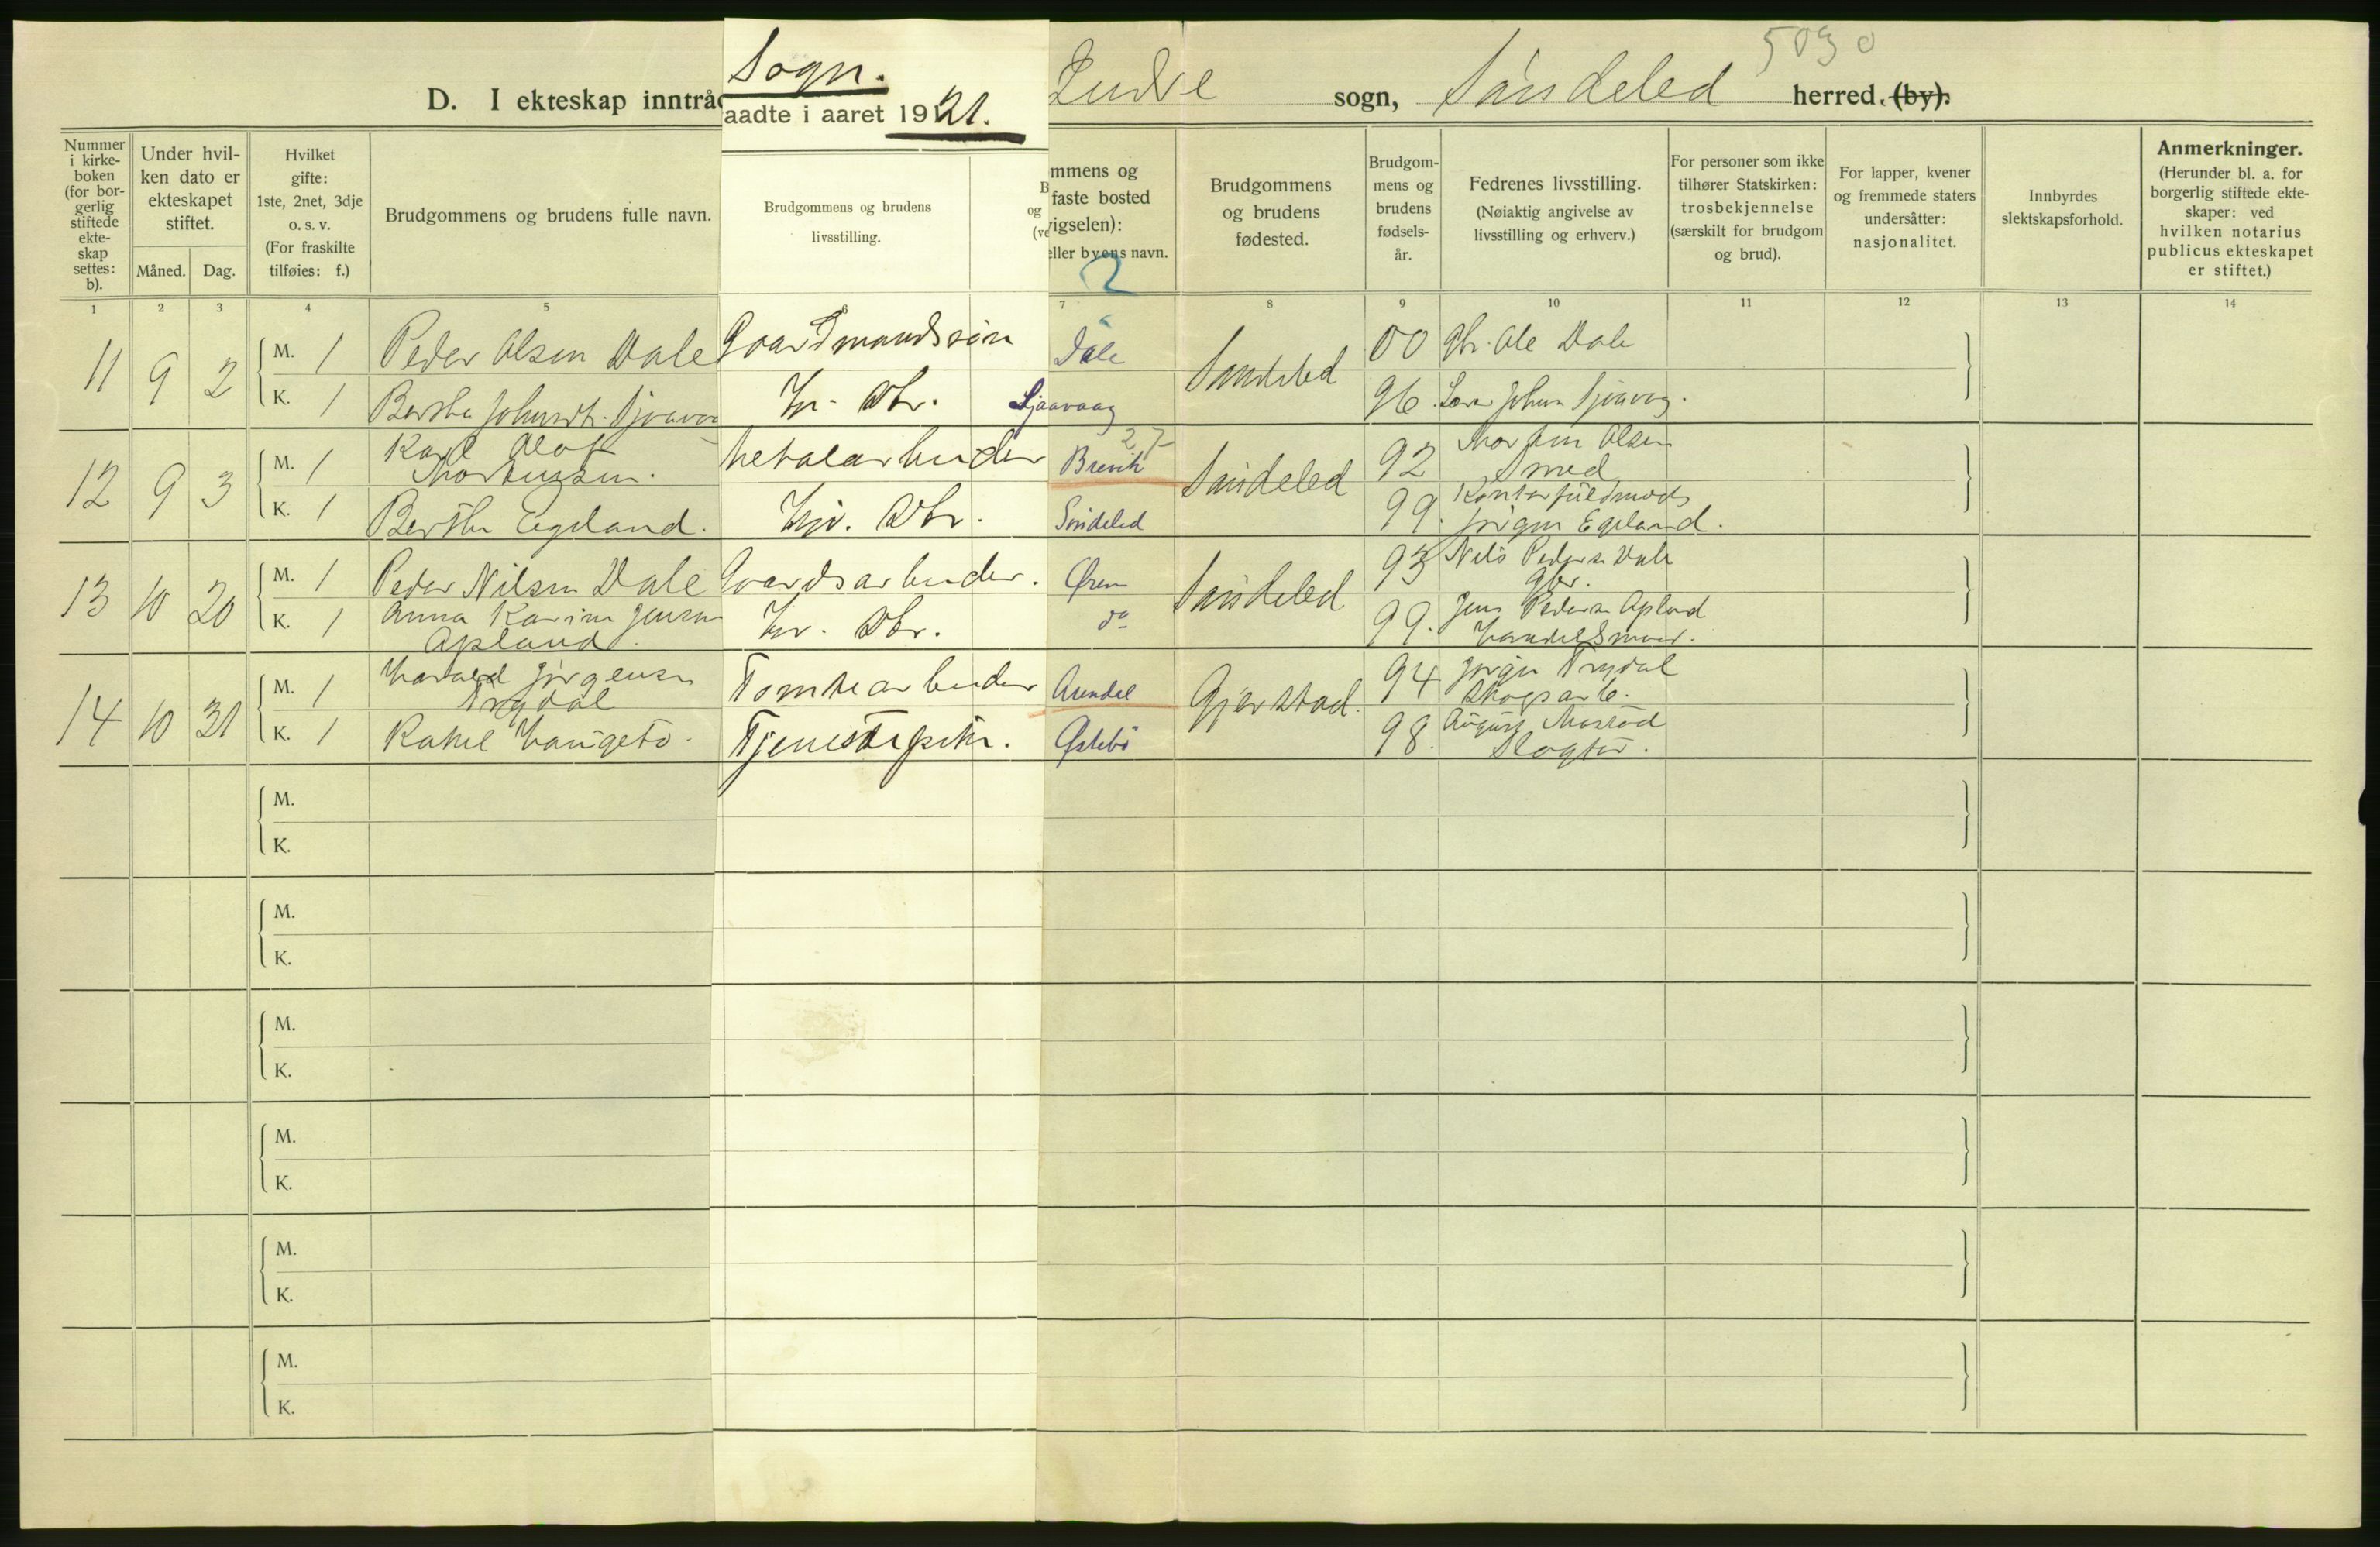 5030
Sogn.
D. I ekteskap inntrå
aadte i aaret 1921.
Indre sogn, Søndeled herred. (by).
Nummer i kirke-boken (for bor-gerlig stiftede ekte-skap settes: b).
Under hvil-ken dato er ekteskapet stiftet.
Måned. Dag.
Hvilket gifte: 1ste, 2net, 3dje o. s. v. (For fraskilte tilføies: f.)
Brudgommens og brudens fulle navn.
Brudgommens og brudens livsstilling.
B
og
(ve
mmens og
faste bosted
igselen):
eller byens navn.
2
Brudgommens og brudens fødested.
Brudgom-mens og brudens fødsels-år.
Fedrenes livsstilling. (Nøiaktig angivelse av livsstilling og erhverv.)
For personer som ikke tilhører Statskirken: trosbekjennelse (særskilt for brudgom og brud).
For lapper, kvener og fremmede staters undersåtter: nasjonalitet.
Innbyrdes slektskapsforhold.
Anmerkninger. (Herunder bl. a. for borgerlig stiftede ekte-skaper: ved hvilken notarius publicus ekteskapet er stiftet.)
1 2 3 4 5 6 7 8 9 10 11 12 13 14
11 9 2 M. 1 Peder Olsen Dale Gaardmandssøn Dale Søndeled 00 Gbr. Ole Dale
K. 1 Bertha Johnsdt. Sjøavaag Hr. Dtr. Sjaavaag 96. John Sjøavag.
12 9 3 M. 1 Karl Olof Thorkensen. Metalarbeider 27 Brevik Søndeled 92 Olsen Smed
K. 1 Berthe Egeland. Hr. Dtr. Søndeled 99. Kontorfuldmægt. Jørgen Egeland.
13 10 20 M. 1 Peder Nilsen Dale Gaardsarbeider. Øren Søndeled 93 Nils Pedersen Dale Gbr.
K. 1 Anna Karine Jensen Apland. Hr. Dtr. do 99. Jens Pedersen Apland Handelsmand.
14 10 31 M. 1 Harald Jørgensen Trydal Tomtearbeider Arendal Gjerstad. 94 Jørgen Trydal Skogsarb.
K. 1 Rakel Haugeto. Tjenestepike. Østebø 98. August Slagter.
M.
K.
M.
K.
M.
K.
M.
K.
M.
K.
M.
K.